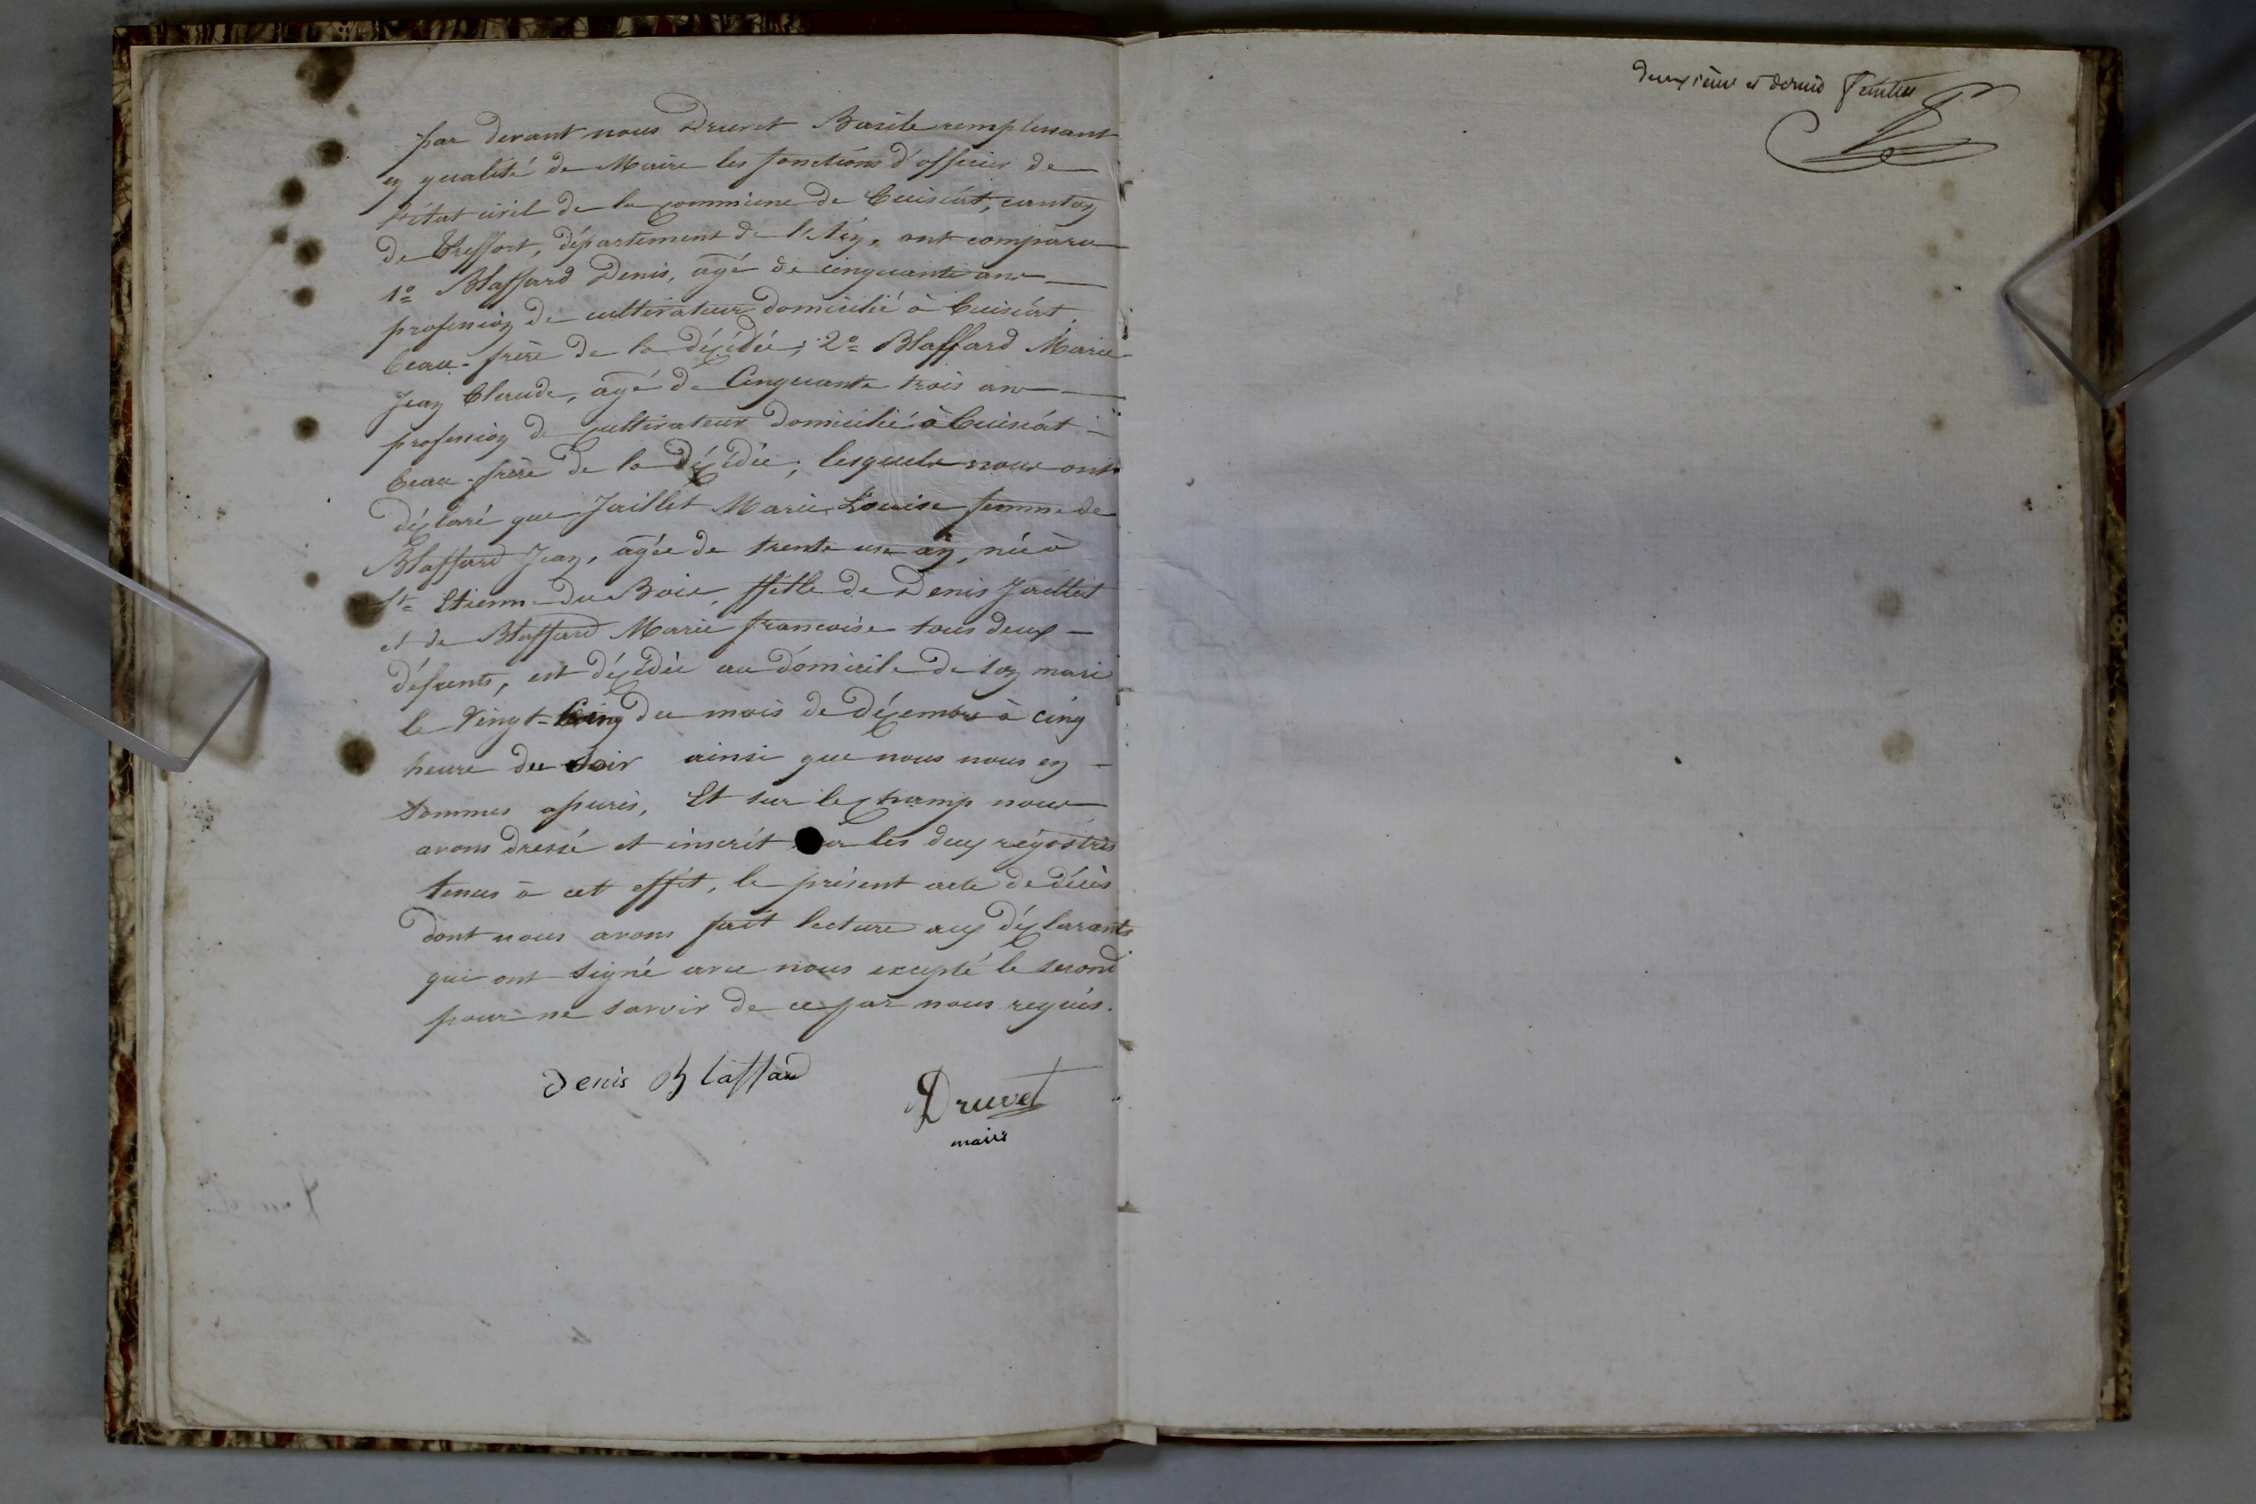 par devant nous Druvet Basile remplissant
en qualité de Maire les fonctions d'officier de
l'état civil de la commune de Cuisiat, canton
de Treffort, département de l'Ain, ont comparu
1º Blaffard Denis, agé de cinquante ans
profession de cultivateur domicilié à Cuisiat
beau-frère de la décédée; 2º Blaffard Marie
Jean Claude, agé de Cinquante trois ans
profession de cultivateur domicilié à Cuisiat
beau-frère de la décédée; lesquels nous ont
déclaré que Jaillet Marie Louise femme de
Blaffard Jean, agée de trente un an, née à
St Etienne du Bois, fille de Denis Jaillet
et de Blaffard Marie françoise tous deux
défunts, est décédée au domicile de son mari
le Vingt-Cinq du mois de décembre à cinq
heure du soir ainsi que nous nous en
sommes assurés, Et sur le champ nous
avons dressé et inscrit sur les deux régistres
tenus à cet effet, le présent acte de décès
dont nous avons fait lecture aux déclarants
qui ont signé avec nous excepté le second
pour ne savoir de ce par nous requis.
Denis Blaffard
Druvet
maire
deuxième et dernier feuillet